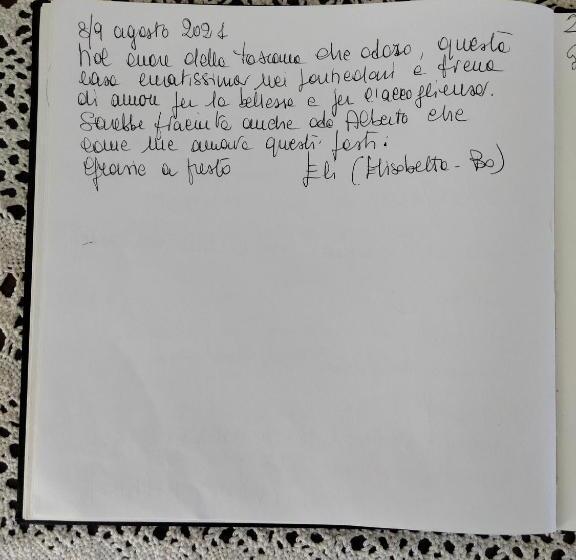 8/9 agosto 2021
Nel cuore della toscana che adoro, questa
casa curatissima nei particolari è piena
di amore per la bellezza e per l'accoglienza.
Sarebbe piaciuta anche ad Alberto che
come me amava questi posti.
Grazie a presto Eli (Elisabetta - Bo)
2